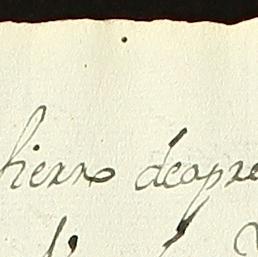 hierro deapre